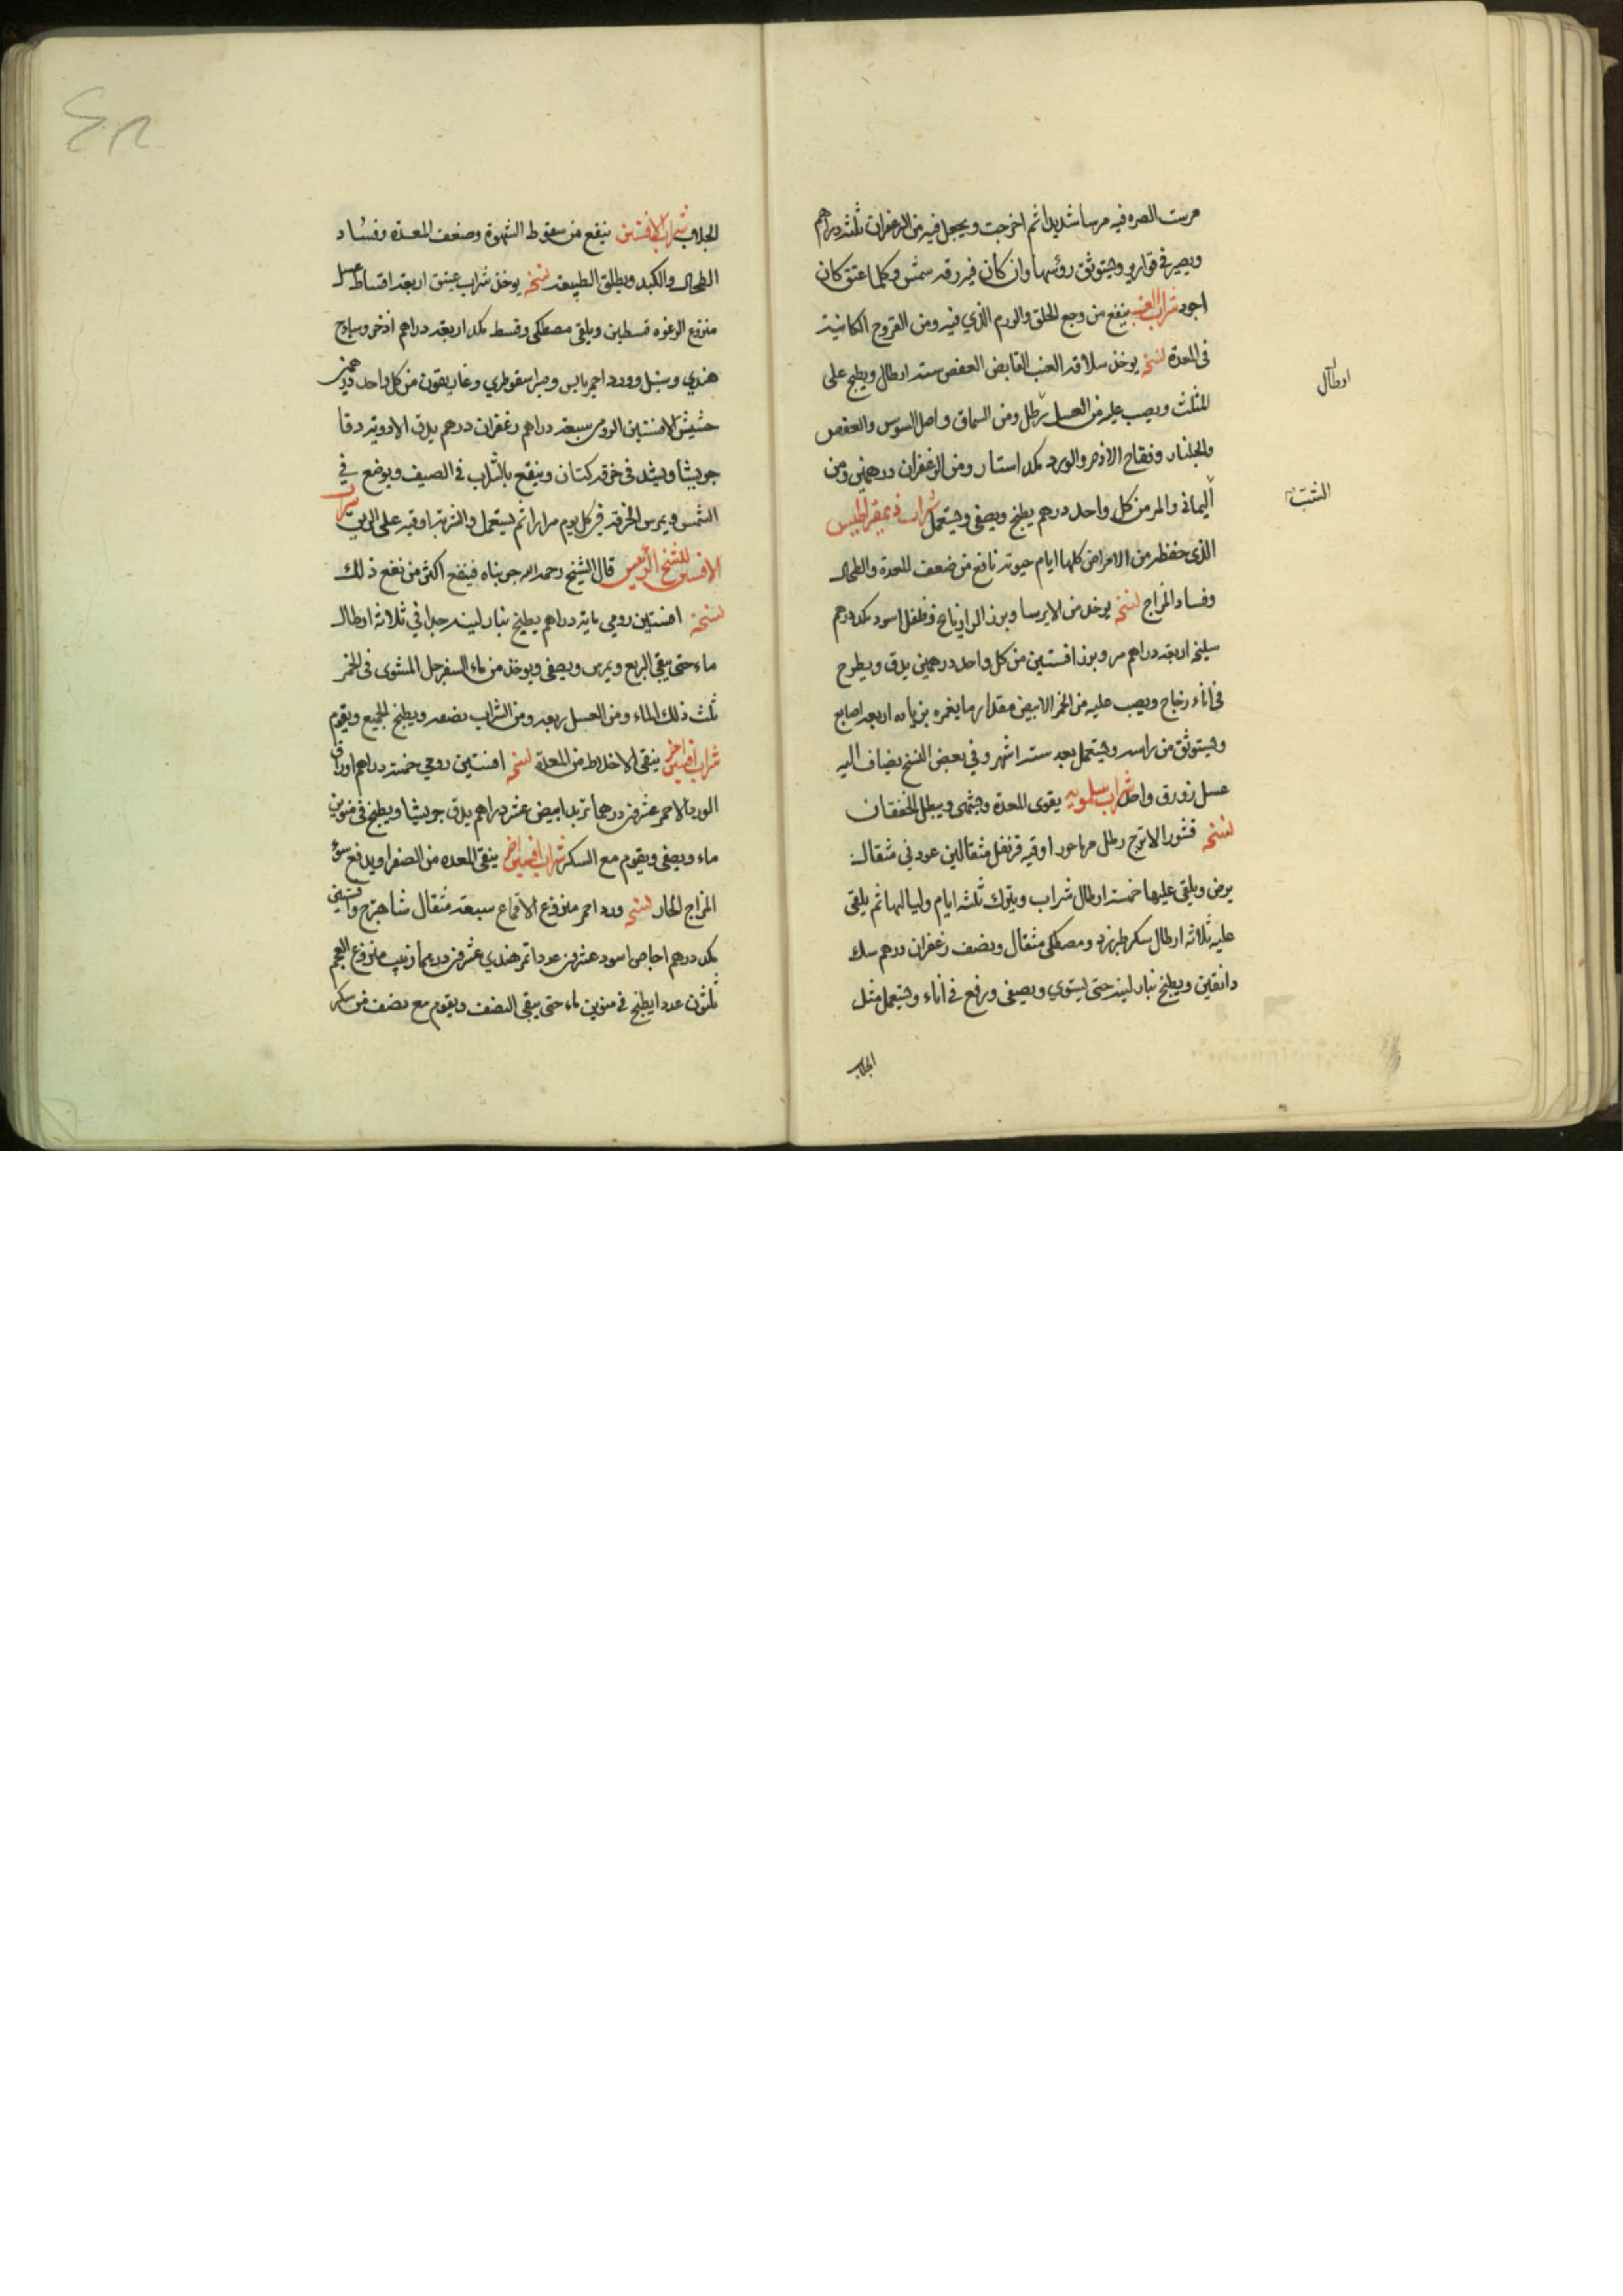 مرست الصره فيه مرسا شديدا ثم اخرجت ويجعل فيه من الزعفران ثلثه دراهم
ويصير في قوارير ويستوثق رؤسها وان كان فيه رقه شمس وكلما عتق كان
اجود شراب العنب ينفع من وجع الحلق والورم الذي فيه ومن القروح الكاينة
في المعدة نسخه يوخذ سلافة العنب القابض العفص ستة ارطال ويطبخ على
ارطال
المثلث ويصب عليه من العسل رطل ومن السماق واصل السوس والعفص
والجلنار وفقاح الاذخر والورد بكد استار ومن الزعفران درهمين ومن
الشب
اليماني والمر من كل واحد درهم يطبخ ويصفى ويستعمل شراب ذيمقراطيس
الذي حفظه من الامراض كلها ايام حيوته نافع من ضعف المعدة والطحال
وفساد المزاج نسخه يوخذ من الايرسا وبزر الرازيانج وفلفل اسود بكد درهم
سليخه اربعة دراهم مر وبزر افسنتين من كل واحد درهمين يدق ويطرح
في اناء زجاج ويصب عليه من الخمر الابيض مقدار ما يغمره بزياده اربعه اصابع
ويستوثق من راسه ويستعمل بعد ستة اشهر وفي بعض النسخ يضاف اليه
عسل زورق واحد شراب سلمويه يقوى المعدة ويشهى ويبطل الخفقان
نسخه قشور الاترج رطل اوقيه قرنفل مثقالين عود ني مثقال
يرض ويلقى عليها خمسة ارطال شراب ويترك ثلثه ايام ولياليها ثم يلقى
عليه ثلاثه ارطال سكر طبرزد ومصطكى مثقال ونصف زعفران درهم سك
دانقين ويطبخ بنار لينه حتى يستوي ويصفى ورفع في اناء ويستعمل مثل
الجلاب
الجلاب شراب الافسنتين ينفع من سقوط الشهوة وضعف المعدة وفساد
الطحال والكبد ويطلق الطبيعة نسخه يوخذ شراب عتيق اربعة اقساط عسل
منزوع الرغوه قسطين ويلقى مصطكى وقسط بكد اربعة دراهم اذخر وساذج
هندي وسنبل وورد احمر يابس وصبر اسقوطري وغاريقون من كل واحد درهمين
حشيش الافسنتين الرومي سبعة دراهم زعفران درهم يدق الادوية دقا
جريشا ويشد في خرقة كتان وينقع بالشراب في الصيف ويوضع في
الشمس ويمرس الخرقه في كل يوم مرارا ثم يستعمل والشربة اوقيه على الريق شراب
الافسنتين للشيخ الرئيس قال الشيخ رحمه الله جربناه فينفع اكثر من نفع ذلك
نسخة افسنتين رومي ماية دراهم يطبخ بنار لينه جدا في ثلاثة ارطال
ماء حتى يبقى الربع ويمرس ويصفى ويوخذ من ماء السفرجل المشوى في الخمر
ثلث ذلك الماء ومن العسل ربعه ومن الشراب نصفه ويطبخ الجميع ويقوم
شراب افسنتين اخر ينقى الاخلاط من المعدة نسخه افسنتين رومي خمسة دراهم اوراق
الورد الاحمر عشرين درهما تربد ابيض عشر دراهم يدق جريشا ويطبخ في منوين
ماء ويصفى ويقوم مع السكر شراب افسنتين اخر ينقى المعده من الصفرا ويدفع سوء
المزاج الحار نسخه ورد احمر منزوع الاقماع سبعة مثقال شاهترج وافسنتين
بكد درهم اجاص اسود عشرين عددا تمر هندي عشرين درهما زبيب منزوع العجم
ثلثون عددا يطبخ في منوين ماء حتى يبقى النصف ويقوم مع نصف من سكر